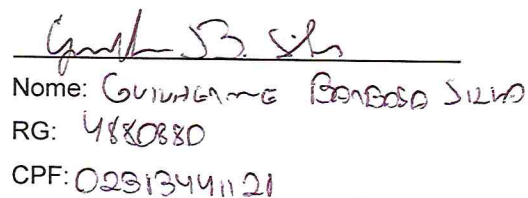 Nome: GUILHERME BARBOSA SILVA
RG: 4880880
CPF: 02313441121